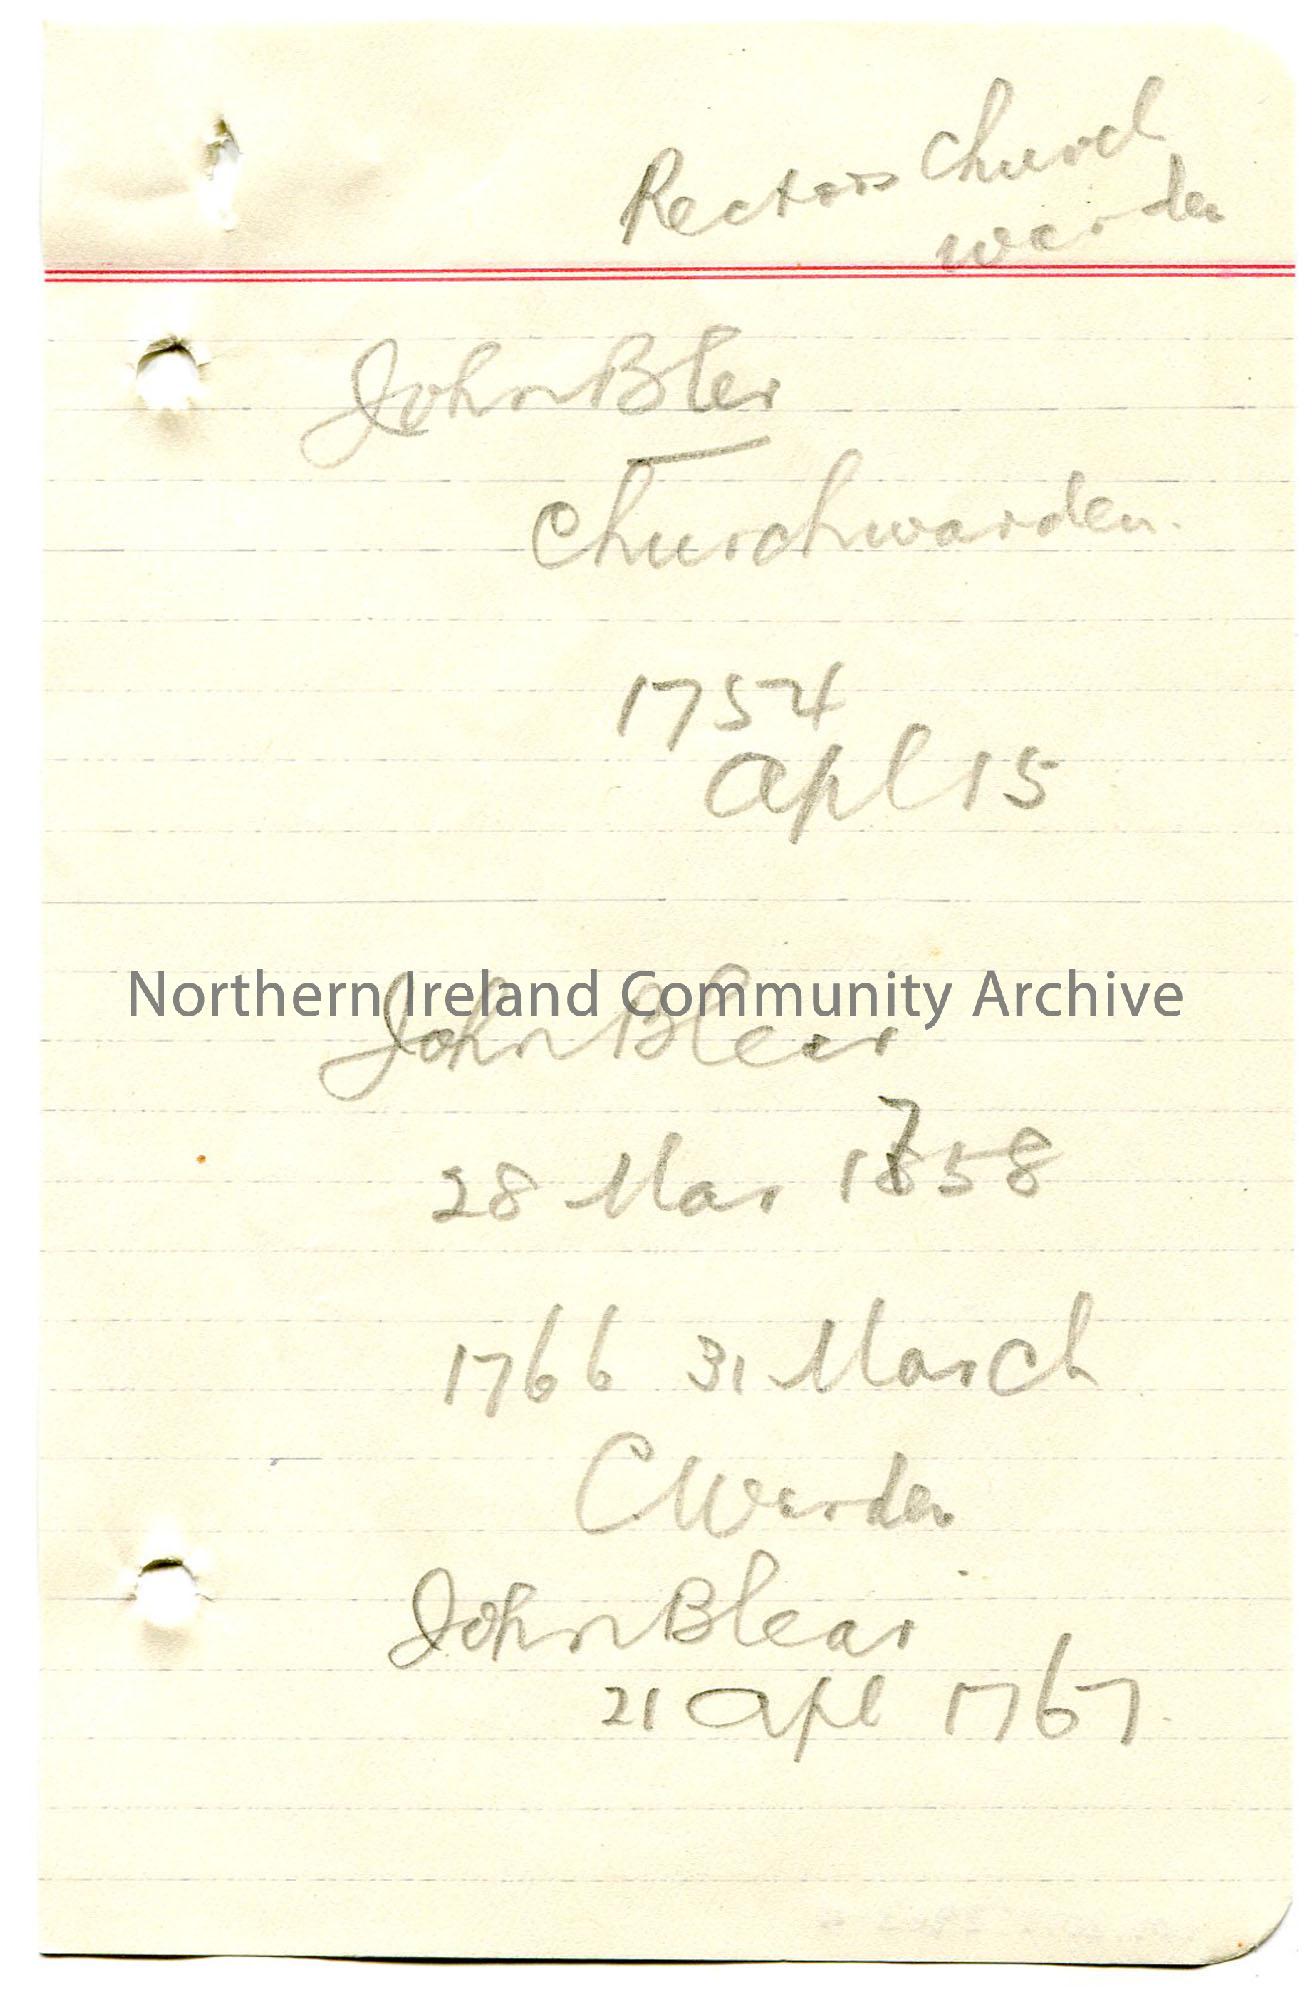 Rectors Church
warden
John Bler
Churchwarden.
1754
Apl 15
Northern Ireland Community Archive
John Blear
28 Mar 1758
1766 31 March
C Warden
John Blear
21 Apl 1767.